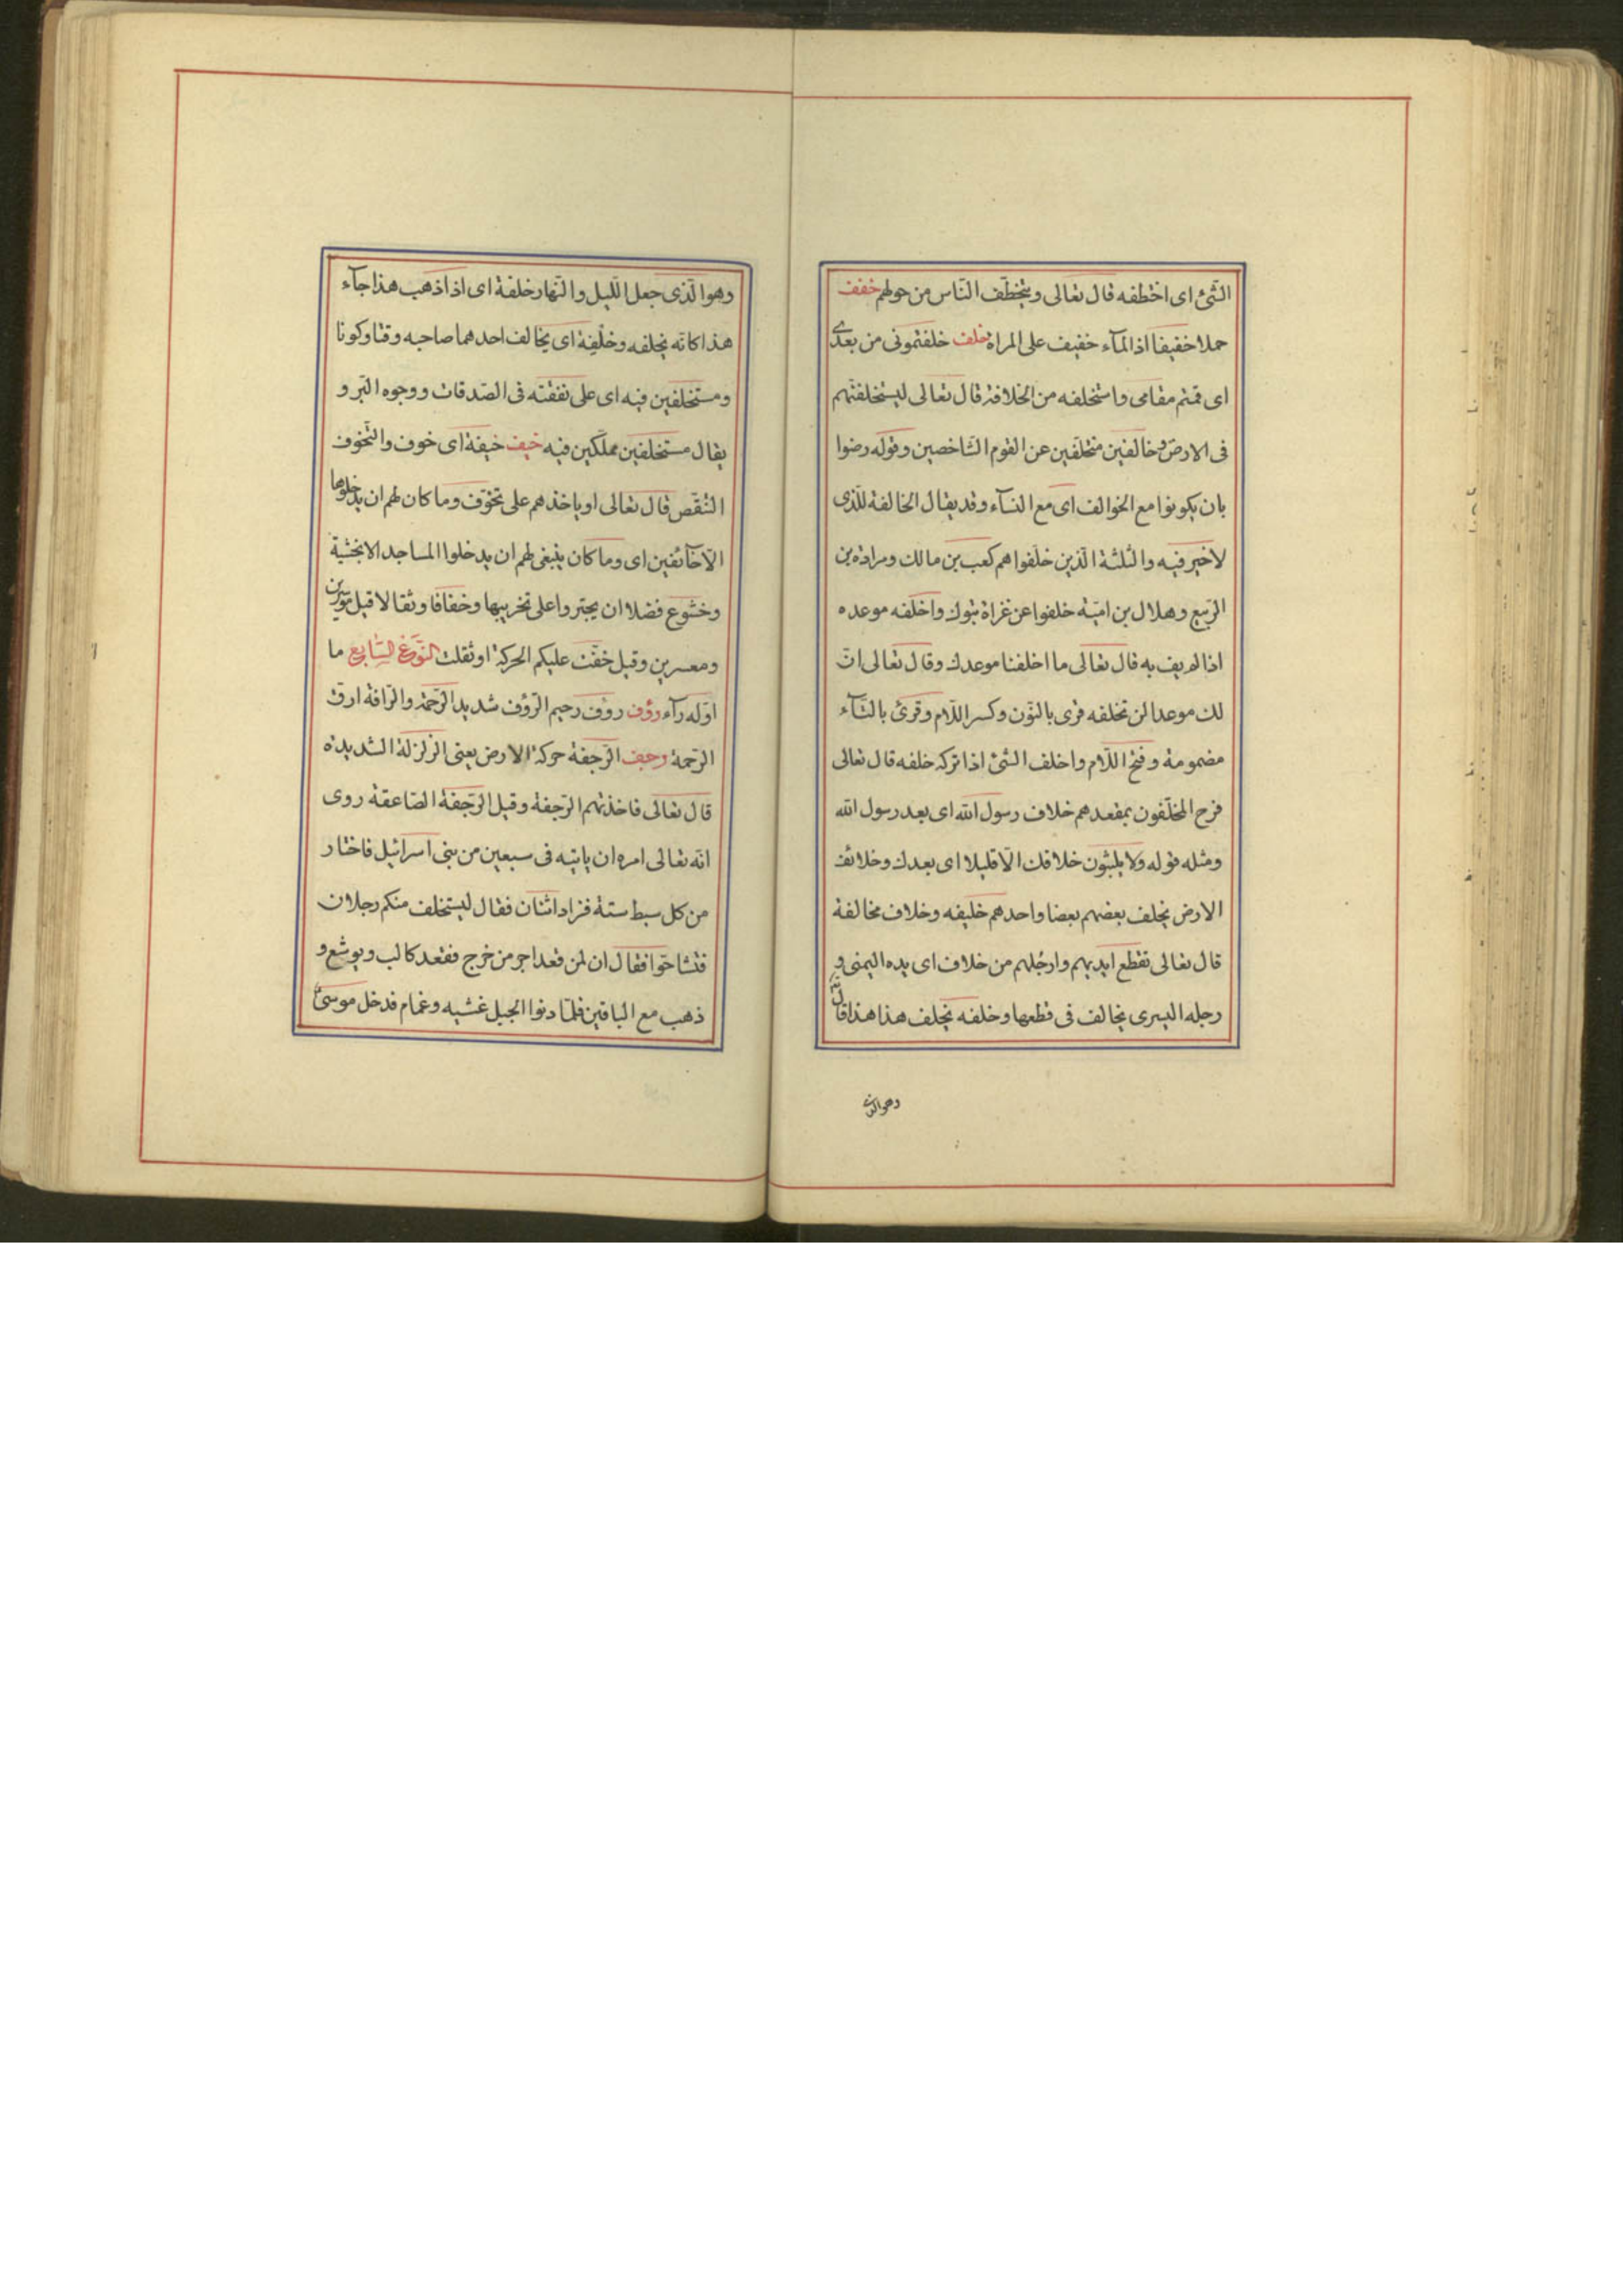 الشّئ اى اختطفه قال تعالى ويتخطّف النّاس من حولهم خفف
حملا خفيفا اذ المآء خفيف على المراة خلف خلفتمونى من بعدى
اى قمتم مقامى واستخلفه من الخلافة قال تعالى ليستخلفنّهم
فى الارض وخالفين متخلّفين عن القوم الشّاخصين وقوله رضوا
بان يكونوا مع الخوالف اى مع النسآء وقد يقال الخالفة للّذى
لاخير فيه والثلثة الّذين خلّفوا هم كعب بن مالك ومرادة بن
الرّبيع وهلال بن اميّة خلفوا عن غزاة تبوك واخلفه موعده
اذا لم يف به قال تعالى ما اخلفنا موعدك وقال تعالى انّ
لك موعدا لن تخلفه قرى بالنّون وكسر اللّام وقرئ بالتّآء
مضمومة وفتح اللّام واخلف الشّئ اذا تركه خلفه قال تعالى
فرح المخلّفون بمقعدهم خلاف رسول الله اى بعد رسول الله
ومثله قوله ولا يلبثون خلافك الّا قليلا اى بعدك وخلائف
الارض يخلف بعضهم بعضا واحدهم خليفه وخلاف مخالفة
قال تعالى تقطع ايديهم وارجلهم من خلاف اى يده اليمنى و
رجله اليسرى يخالف فى قطعها وخلفه يخلف هذا هذا قال تع
وهو الّذى
وهو الّذى جعل اللّيل والنّهار خلفة اى اذا ذهب هذا جآء
هذا كانّه يخلفه وخلفة اى يخالف احدهما صاحبه وقتا وكونا
ومستخلفين فيه اى على نفقته فى الصّدقات ووجوه البّر و
يقال مستخلفين مملّكين فيه خيف خيفة اى خوف والتّخوف
التنقّص قال تعالى او ياخذهم على تخوّف وما كان لهم ان يدخلوها
الّا خآئفين اى وما كان ينبغى لهم ان يدخلوا المساجد الا بخشية
وخشوع فضلا ان يجتروا على تخريبها وخفافا وثقالا قيل موسرين
ومعسرين وقيل خفّت عليكم الحركة او ثقلت النّوع السّابع ما
اوّله رآء رؤف روف رحيم الرّؤف شديد الرّحمة والرّافة ارقّ
الرّحمة رجف الرّجفة حركة الارض يعنى الزلزلة الشديدة
قال تعالى فاخذتهم الرّجفة وقيل الرّجفة الصّاعقة روى
انّه تعالى امره ان ياتيه فى سبعين من بنى اسرائيل فاختار
من كل سبط ستة فزاد اثنان فقال ليستخلف منكم رجلان
فتشاحّوا فقال ان لمن قعد اجر من خرج فقعد كالب ويوشع و
ذهب مع الباقين فلمّا دنوا الجبل غشيه وغمام فدخل موسى